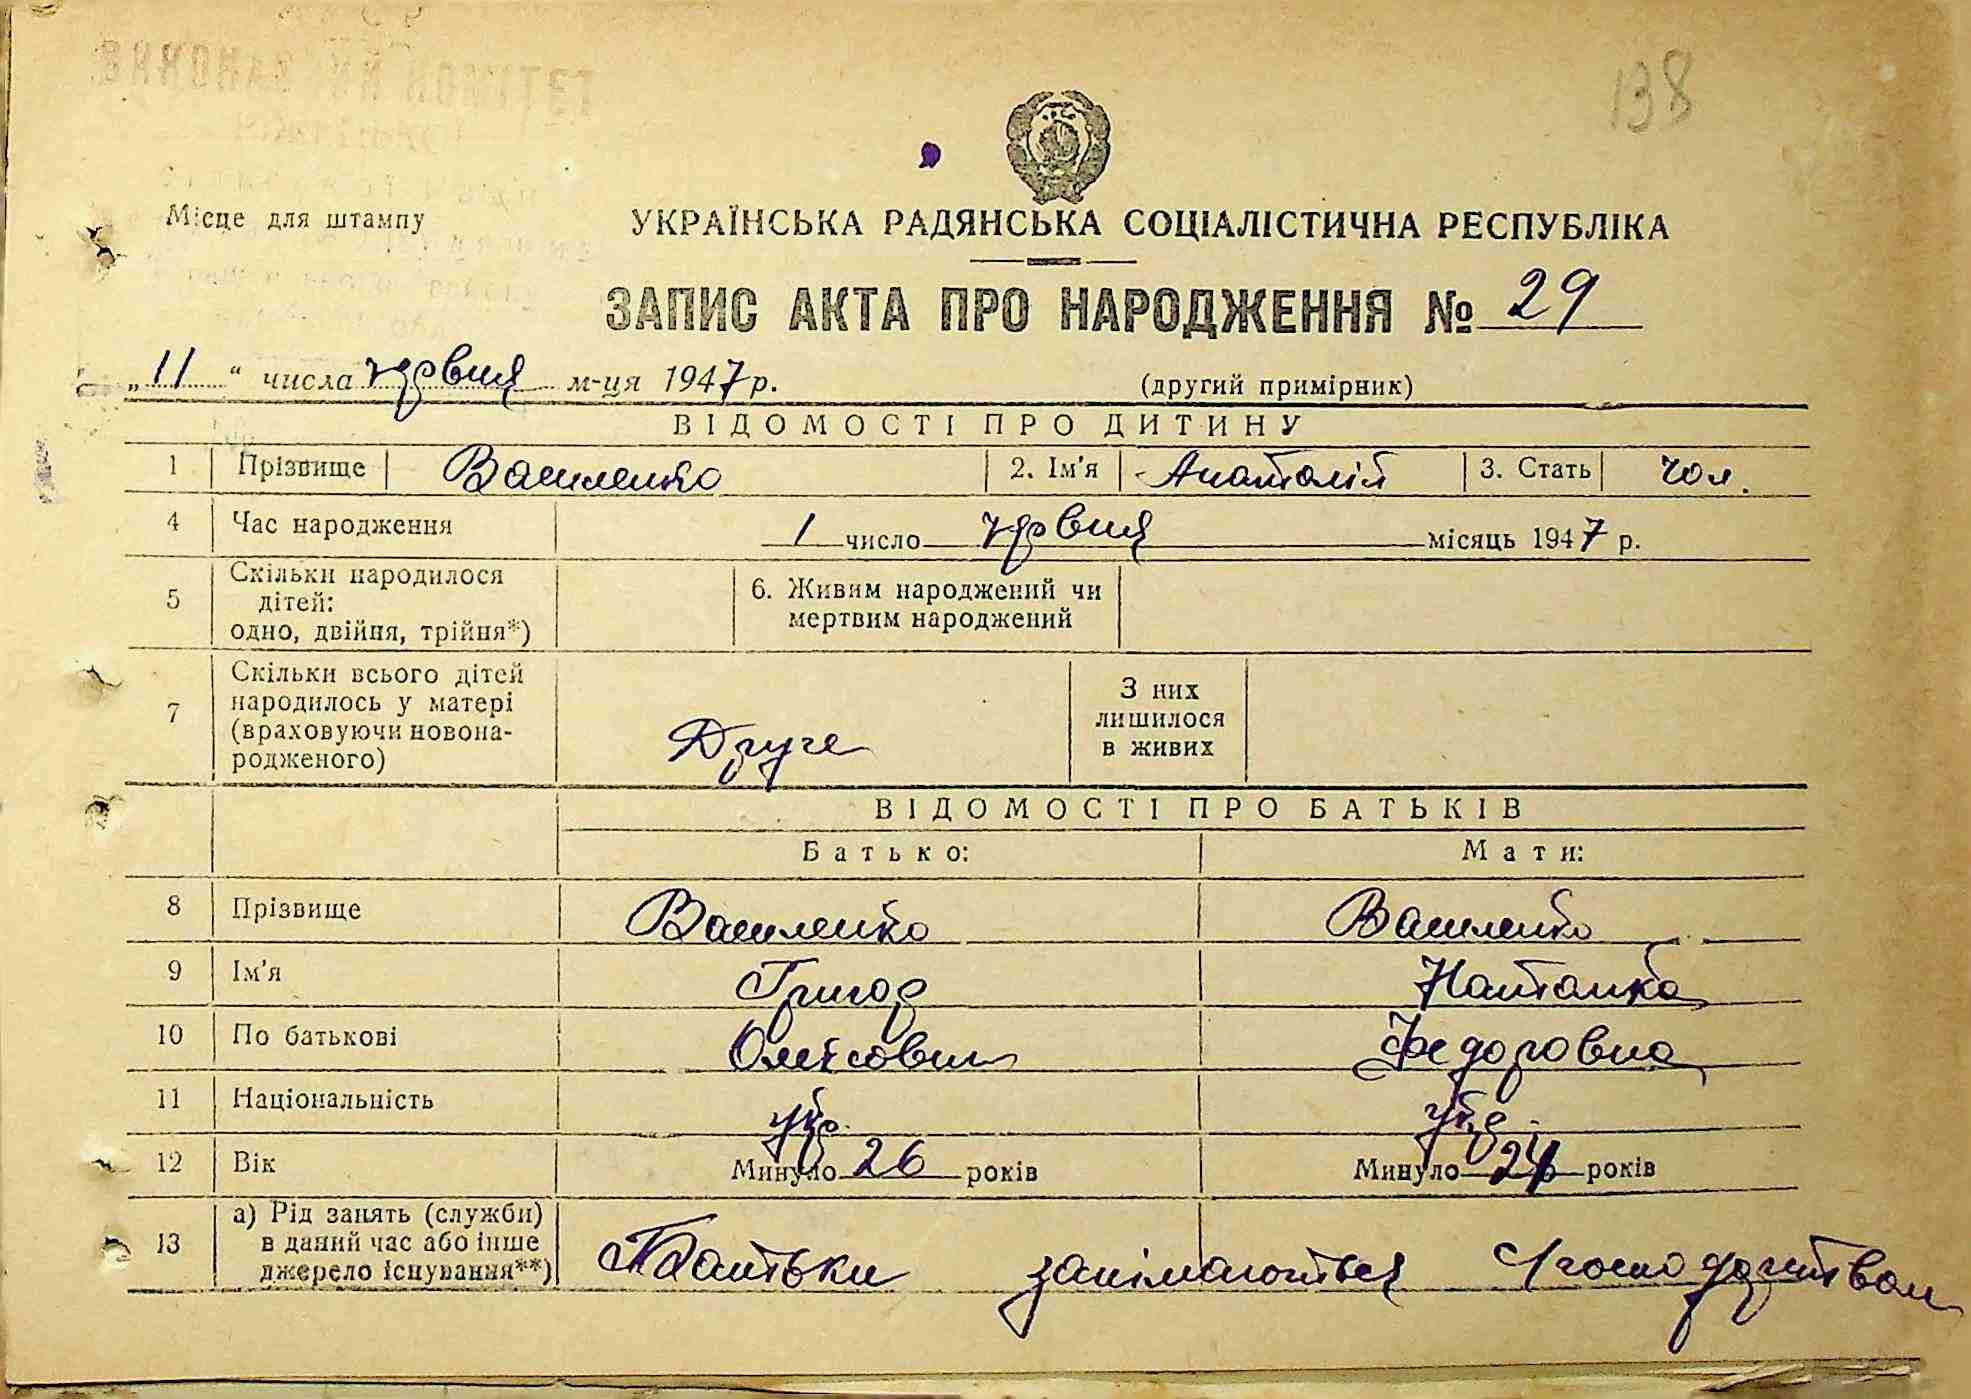 138
Місце для штампу
УКРАЇНСЬКА РАДЯНСЬКА СОЦІАЛІСТИЧНА РЕСПУБЛІКА
ЗАПИС АКТА ПРО НАРОДЖЕННЯ № 29
„11“ числа червня м-ця 1947 р. (другий примірник)
ВІДОМОСТІ ПРО ДИТИНУ
1 Прізвище Василенко 2. Ім'я Анатолій 3. Стать чол.
4 Час народження 1 число червня місяць 1947 р.
5 Скільки народилося дітей: одно, двійня, трійня*) 6. Живим народжений чи мертвим народжений
7 Скільки всього дітей народилось у матері (враховуючи новонародженого) Друге З них лишилося в живих
ВІДОМОСТІ ПРО БАТЬКІВ
Батько: Мати:
8 Прізвище Василенко Василенко
9 Ім'я Григор Наталка
10 По батькові Олексович Федоровна
11 Національність укр. укр.
12 Вік Минуло 26 років Минуло 24 років
13 а) Рід занять (служби) в даний час або інше джерело існування**) Батьки занімаються господарством